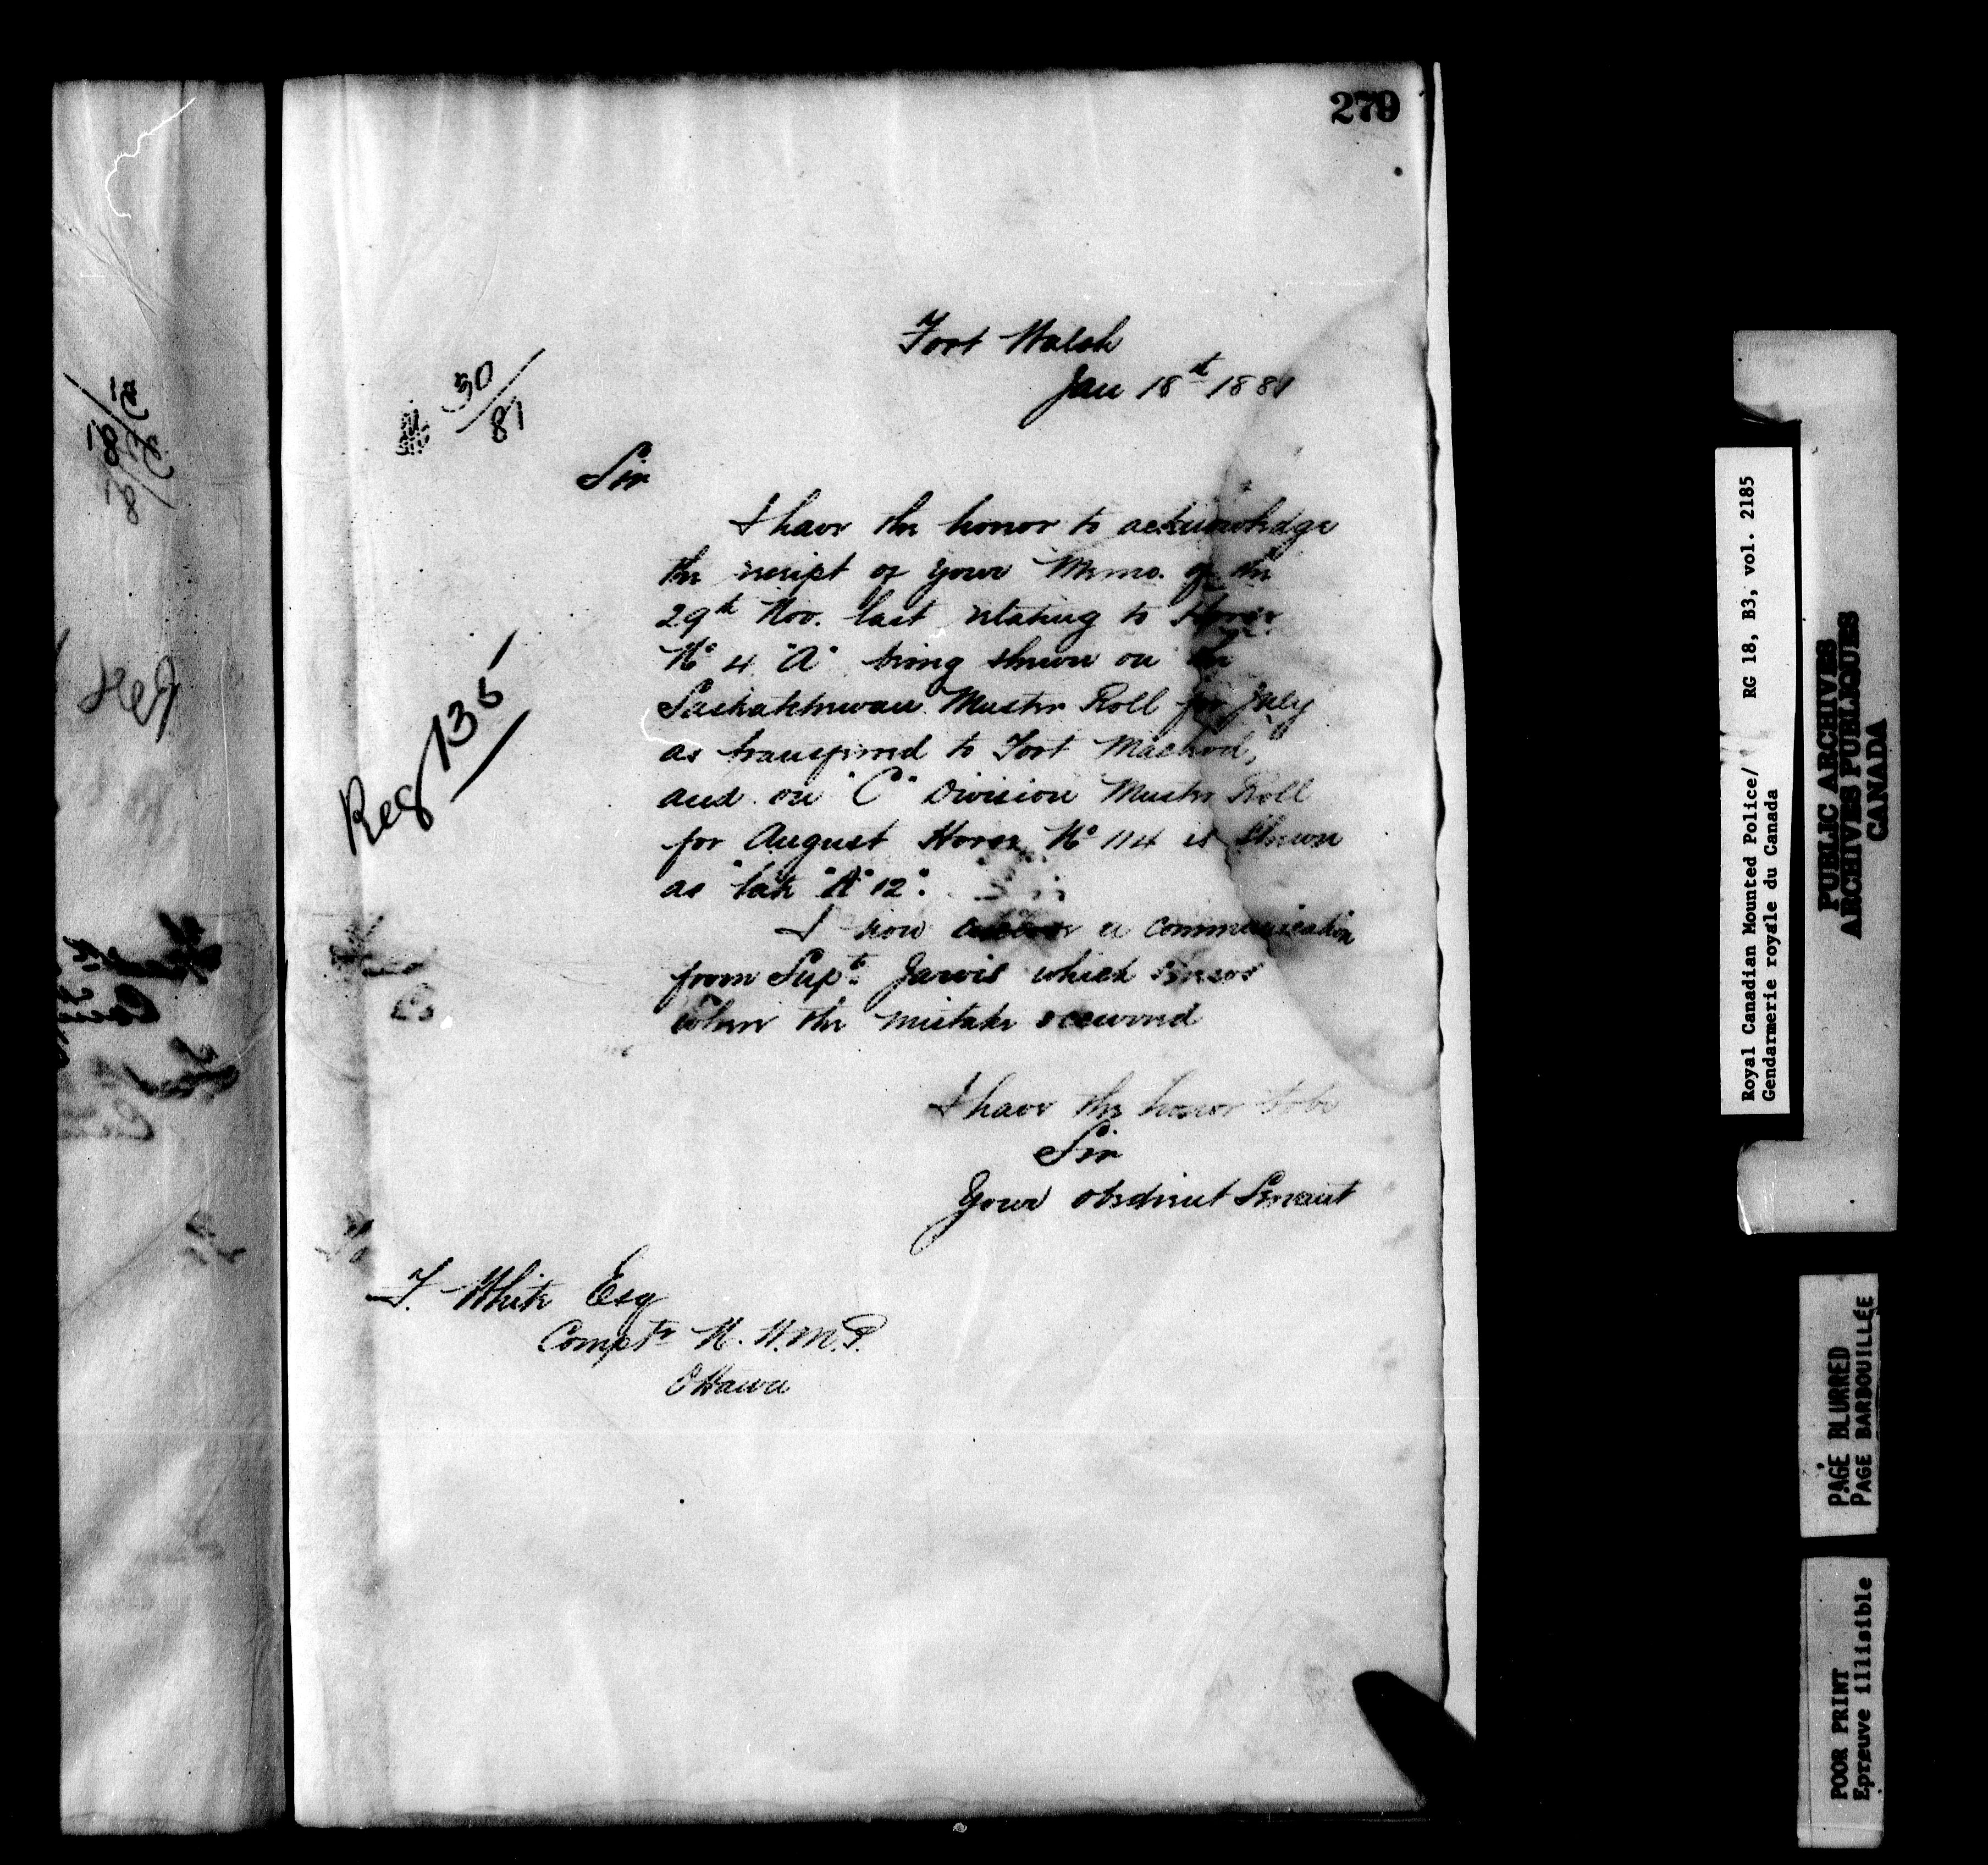 279
Fort Walsh
Jan 18th 1881
30/81
Sir
I have the honor to acknowledge
the receipt of your Memo. of the
29th Nov. last relating to Horse
No 4 "A" being shewn on the
Saskatchewan Muster Roll for July
as transferred to Fort Macleod,
and on "C" Division Muster Roll
for August Horse No 114 is shewn
as "late "A" 12".
I now enclose a communication
from Supt. Jarvis which shews
where the mistake occurred
Reg 135
I have the honor to be
Sir
Your obedient Servant
F. White Esq
Comptr N. W. M. P.
Ottawa
Royal Canadian Mounted Police/ RG 18, B3, vol. 2185
Gendarmerie royale du Canada
PUBLIC ARCHIVES
ARCHIVES PUBLIQUES
CANADA
PAGE BLURRED
PAGE BARBOUILLÉE
POOR PRINT
Epreuve illisible